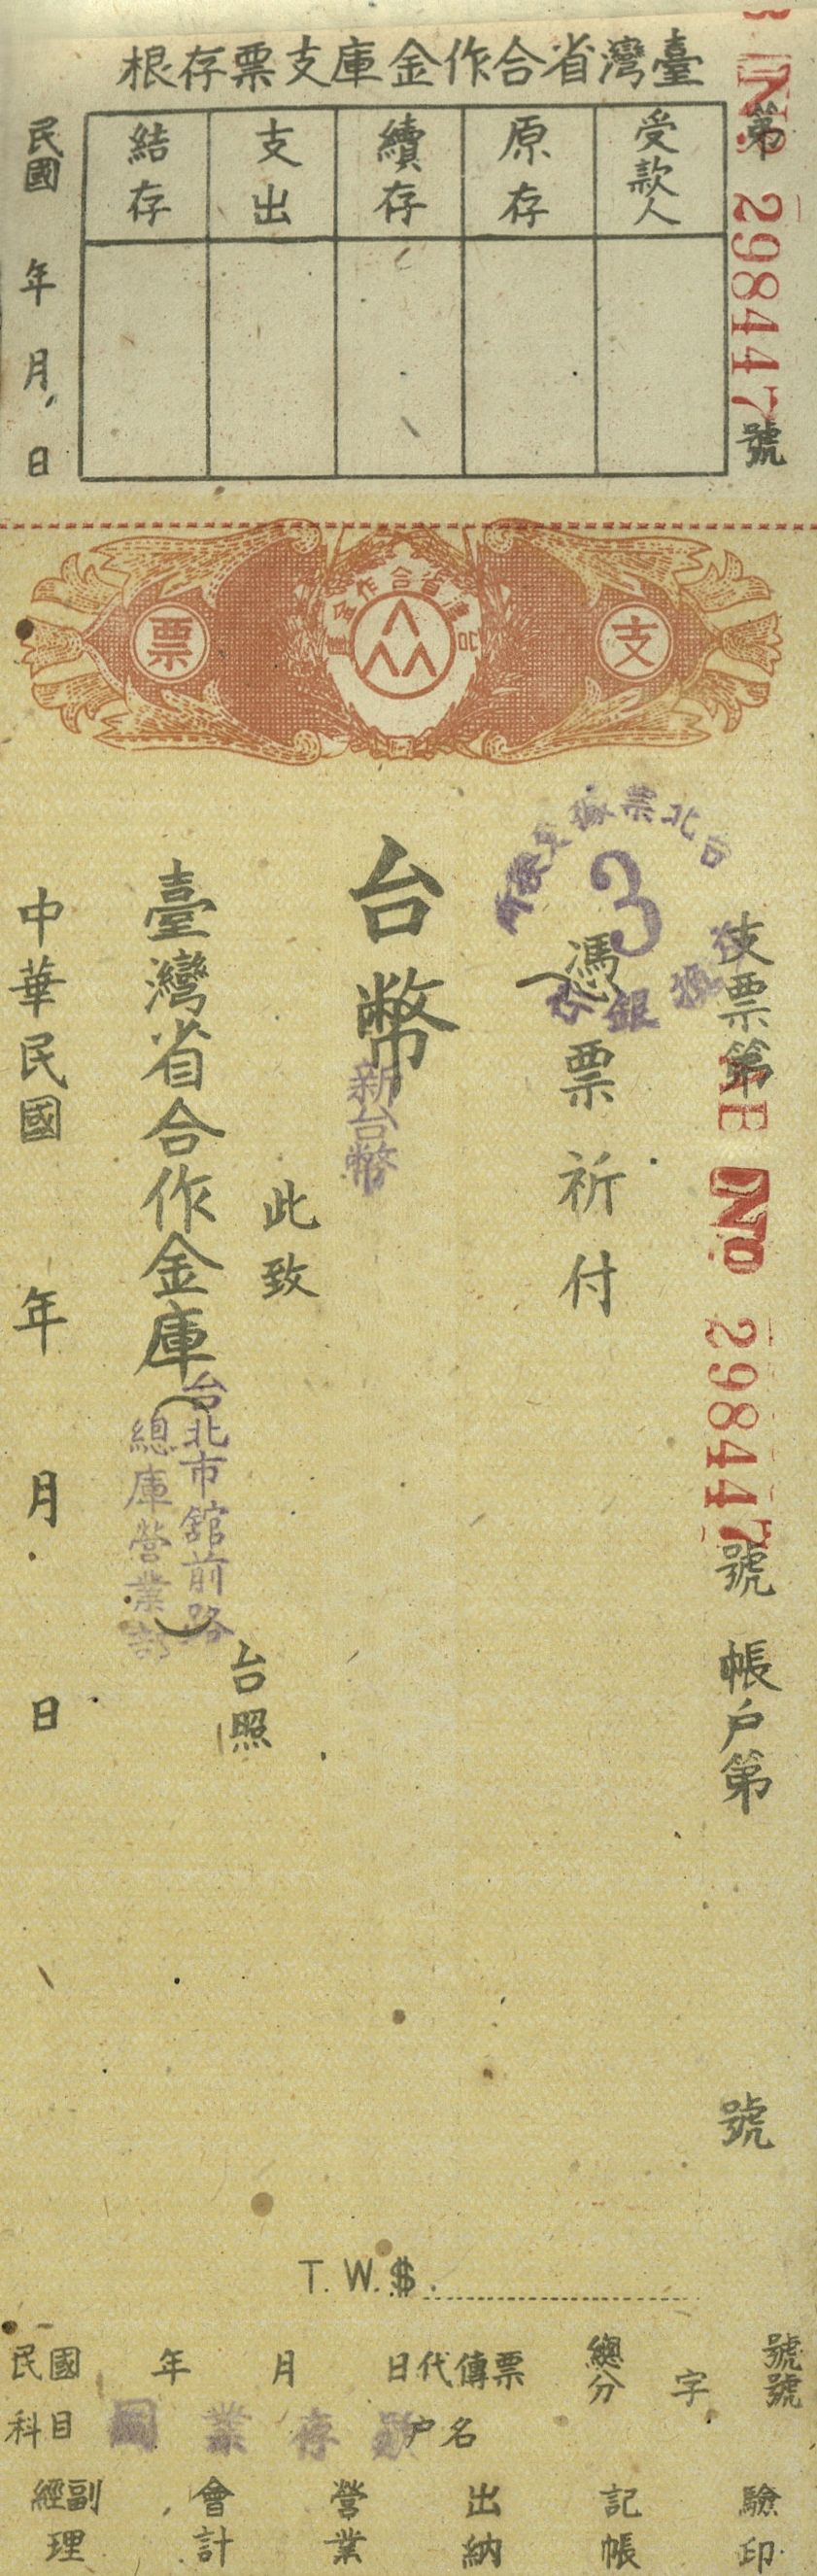 臺灣省合作金庫支票存根
第 No 298447 號
受款人
原存
續存
支出
結存
民國 年 月 日
支
台灣省合作金庫
票
台北票據交換所
3
支票第 E No 298447 號 帳戶第 號
憑票祈付
台幣
新台幣
此致
臺灣省合作金庫
台北市舘前路
總庫營業部
台照
中華民國 年 月 日
T. W. $.
民國 年 月 日代傳票 總分 字 號號
科目 戶名
經副理 會計 營業 出納 記帳 驗印